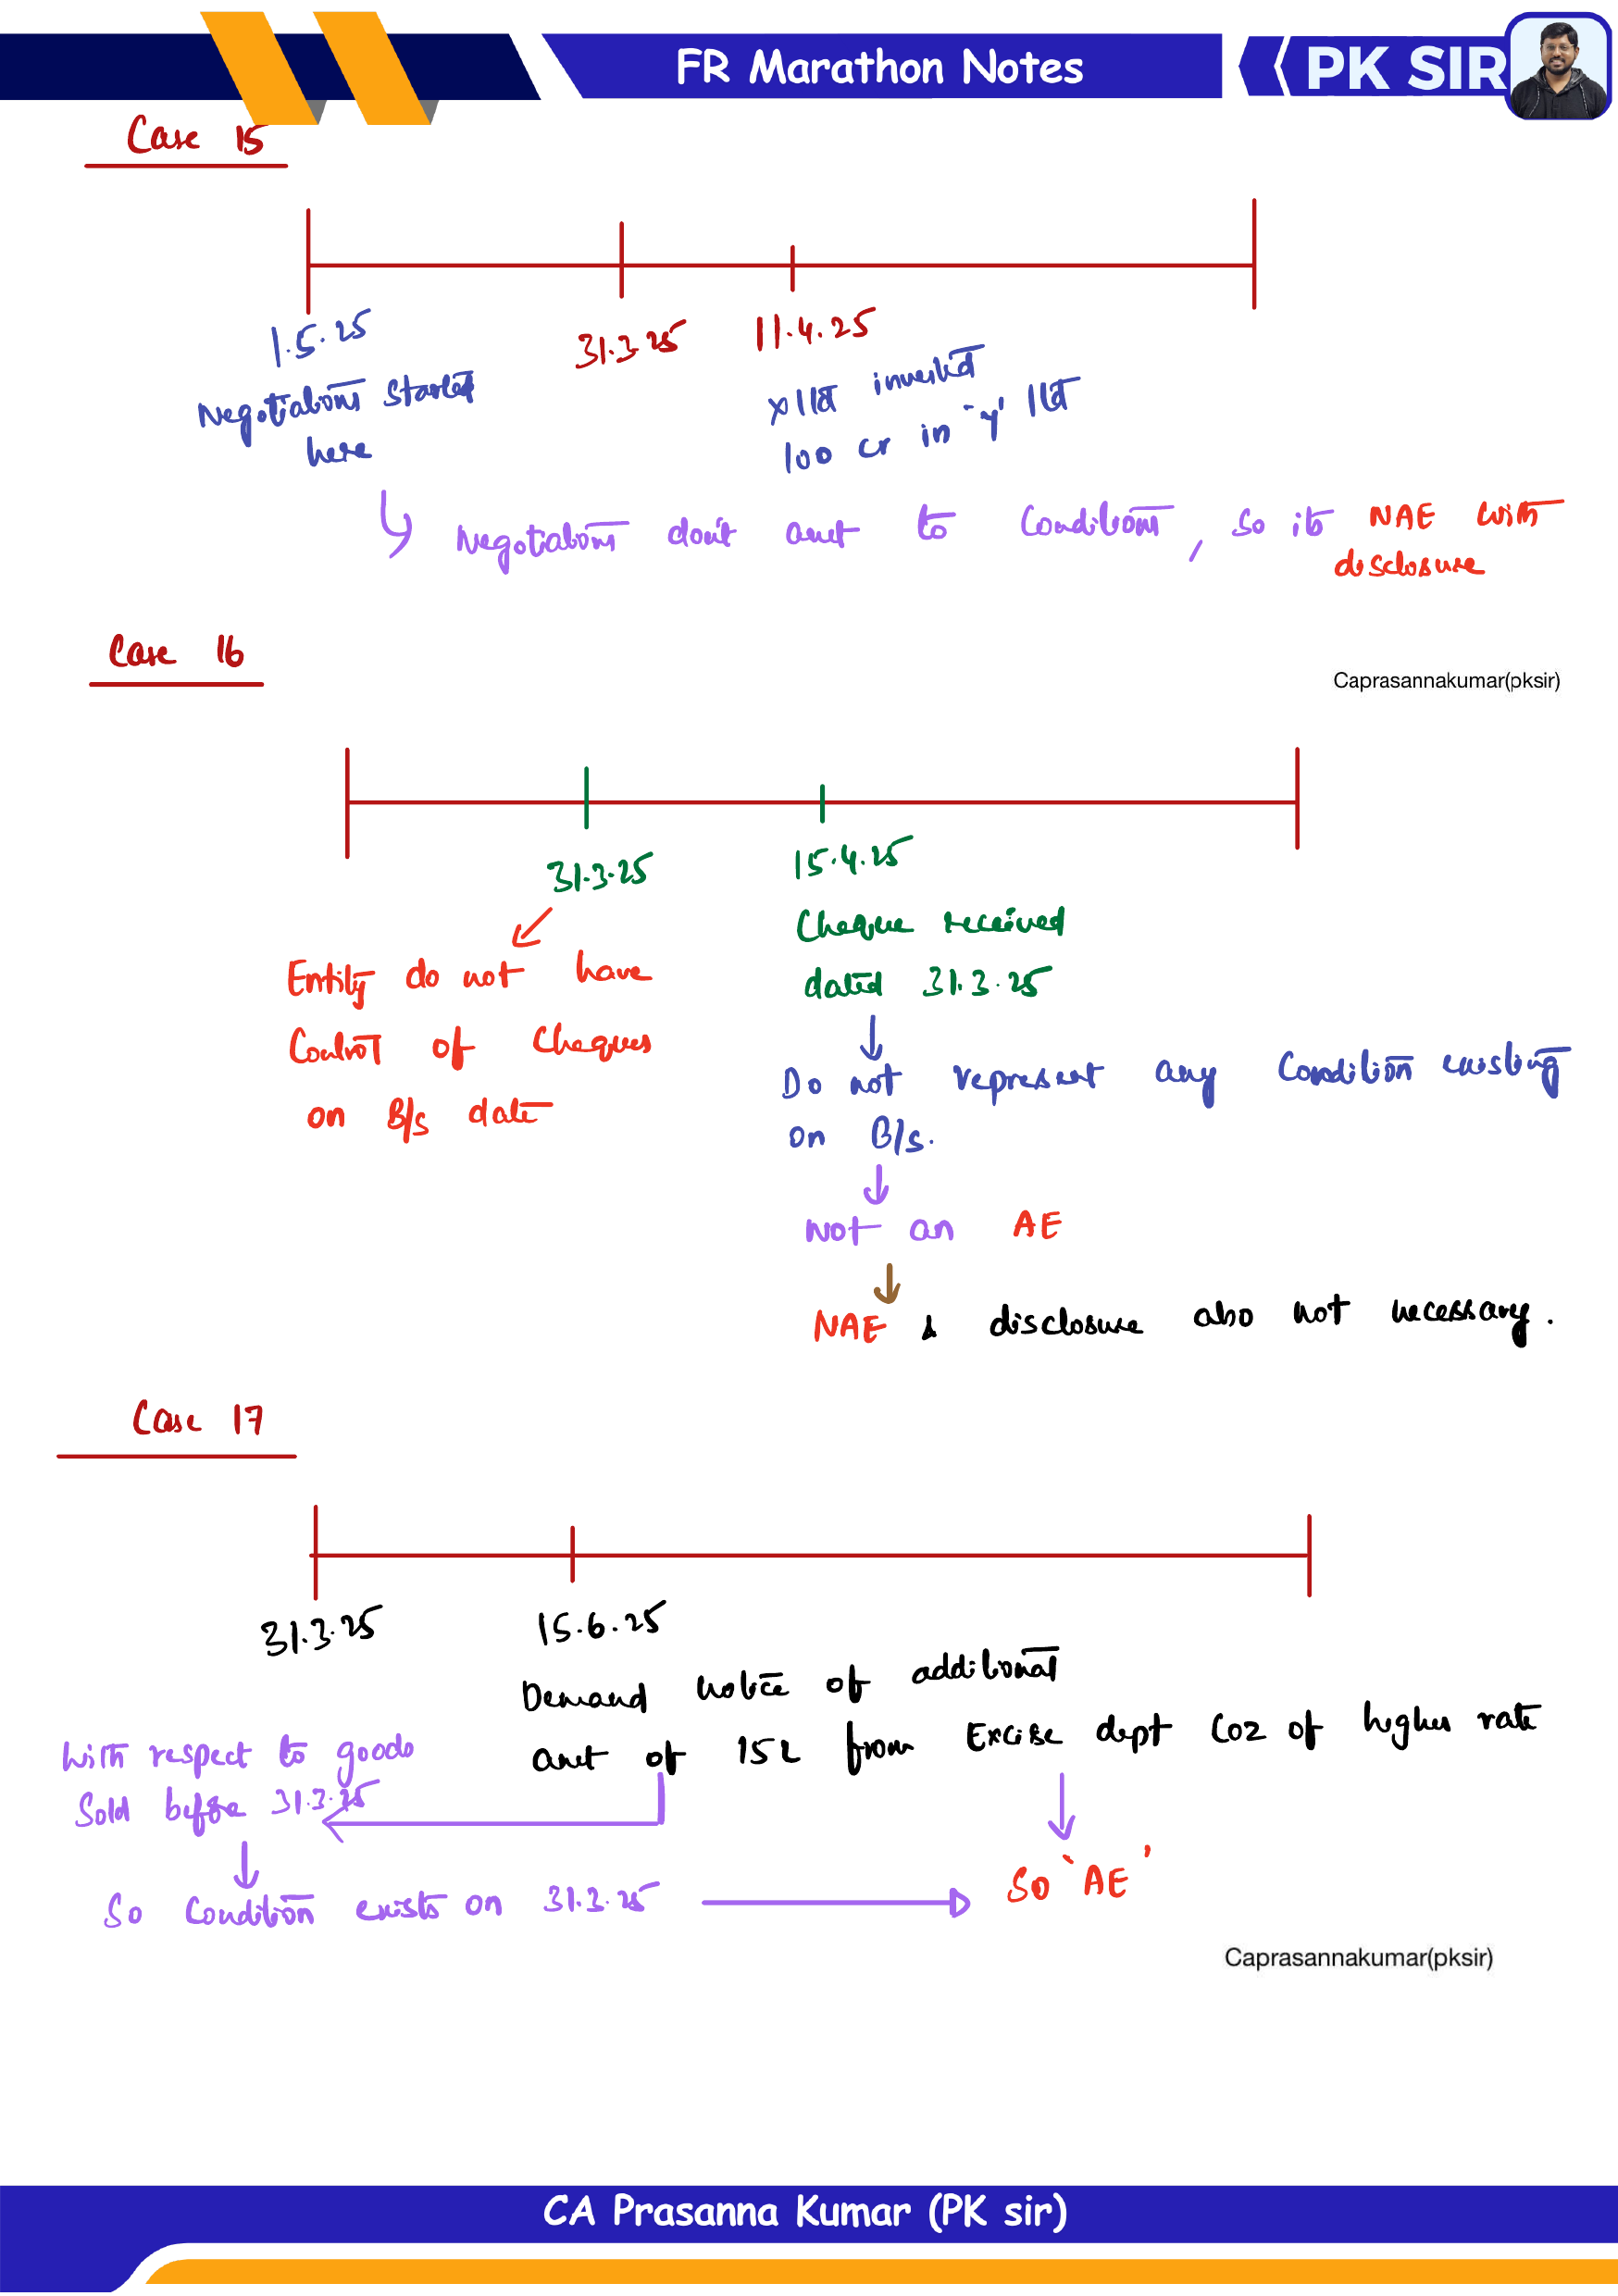 FR Marathon Notes
PK SIR
Case 15
1.5.25
31.3.25
11.4.25
Negotiations started
here
x ltd invested
100 cr in 'y' ltd
Negotiations don't amt to Conditions, so its NAE with
disclosure
Case 16
Caprasannakumar(pksir)
31.3.25
15.4.25
Entity do not have
Control of Cheques
on B/s date
Cheque received
dated 31.3.25
Do not represent any Condition existing
on B/s.
Not an AE
NAE & disclosure also not necessary.
Case 17
31.3.25
15.6.25
Demand notice of additional
amt of 15L from Excise dept Coz of higher rate
With respect to goods
Sold before 31.3.25
So Condition exists on 31.3.25
So 'AE'
Caprasannakumar(pksir)
CA Prasanna Kumar (PK sir)